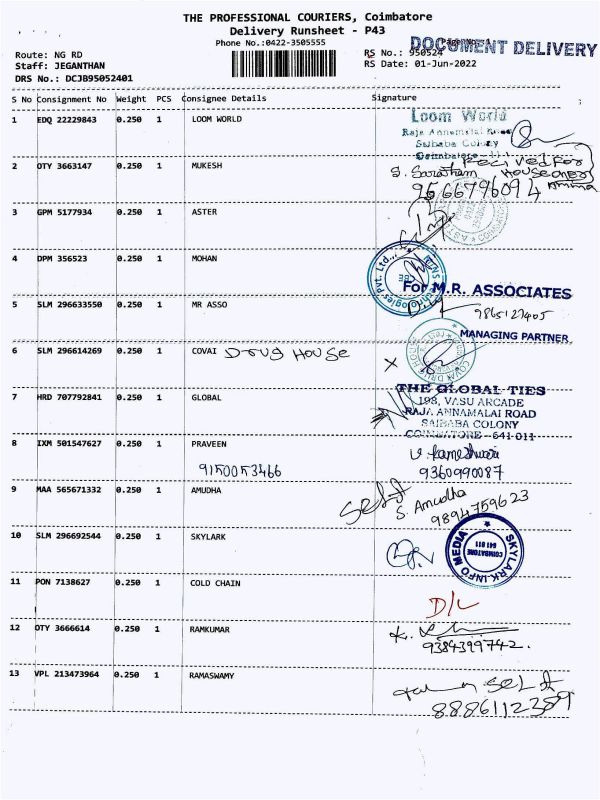 THE PROFESSIONAL COURIERS, Coimbatore
Delivery Runsheet - P43
Phone No.:0422-3505555
Page No.:1
DOCUMENT DELIVERY
Route: NG RD
RS No.: 950524
Staff: JEGANTHAN
RS Date: 01-Jun-2022
DRS No.: DCJB95052401
S No Consignment No Weight PCS Consignee Details Signature
1 EDQ 22229843 0.250 1 LOOM WORLD
Loom World
Raja Annamalai Road
Saibaba Colony
Coimbatore
2 OTY 3663147 0.250 1 MUKESH
Recived For
House oner
Amma
9566796094
3 GPM 5177934 0.250 1 ASTER
4 DPM 356523 0.250 1 MOHAN
Technologies Pvt. Ltd.,
CBE
For M.R. ASSOCIATES
5 SLM 296633550 0.250 1 MR ASSO
9865127405
MANAGING PARTNER
6 SLM 296614269 0.250 1 COVAI Drug House
X
COVAI DRUG HOUSE
7 HRD 707792841 0.250 1 GLOBAL
THE GLOBAL TIES
198, VASU ARCADE
RAJA ANNAMALAI ROAD
SAIBABA COLONY
COIMBATORE - 641 011
8 IXM 501547627 0.250 1 PRAVEEN
9150053466
V. Kameshwari
9360990087
9 MAA 565671332 0.250 1 AMUDHA
Self
S. Amudha
9894759623
10 SLM 296692544 0.250 1 SKYLARK
SKYLARK INFO MEDIA
COIMBATORE
641 011
11 PON 7138627 0.250 1 COLD CHAIN
D/L
12 OTY 3666614 0.250 1 RAMKUMAR
9384399742.
13 VPL 213473964 0.250 1 RAMASWAMY
Self
8886112389